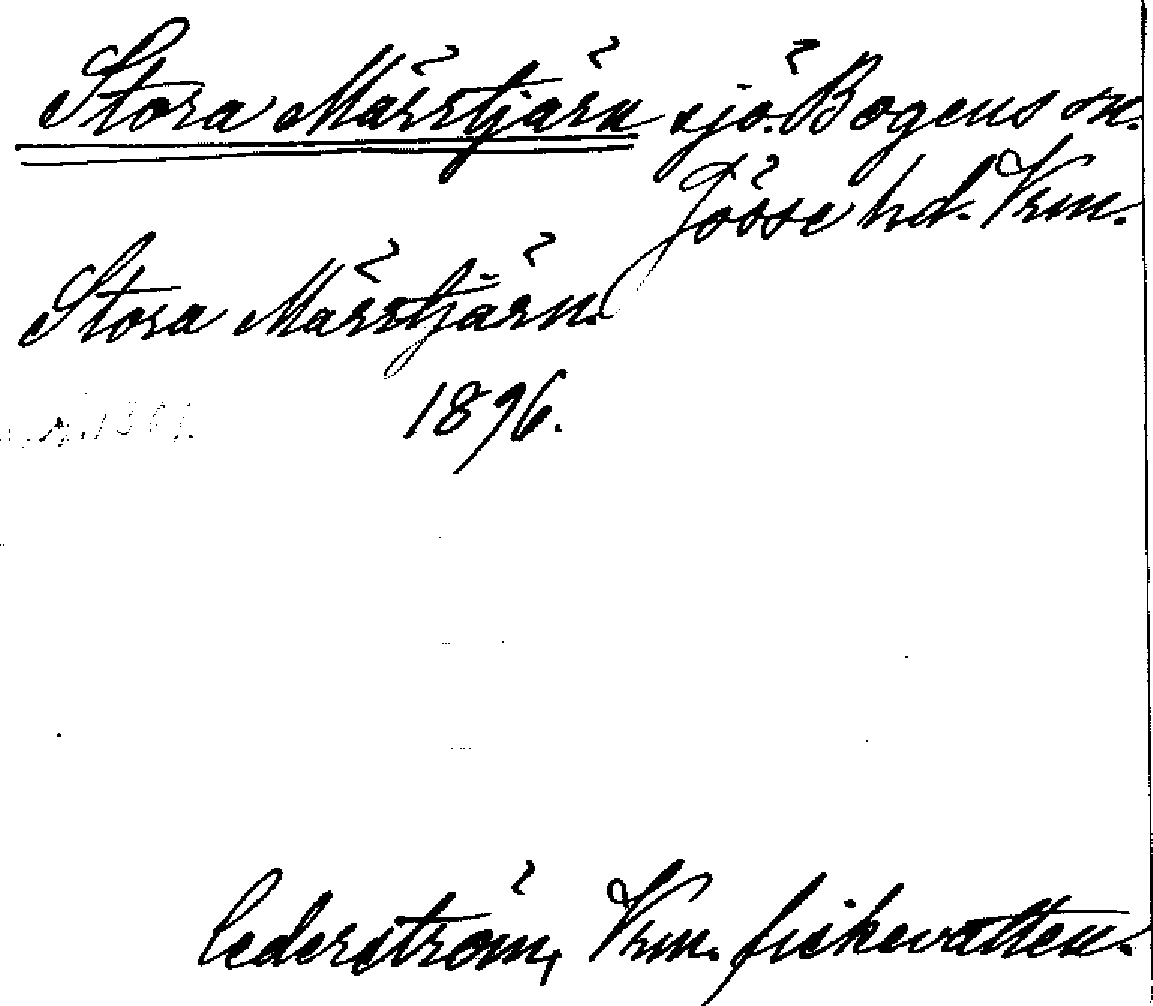 Stora Märrtjärn sjö. Bogens sn.
Jösse hd. Vrm.
Stora Märrtjärn.
1896.
Cederström, Vrm. fiskevatten.